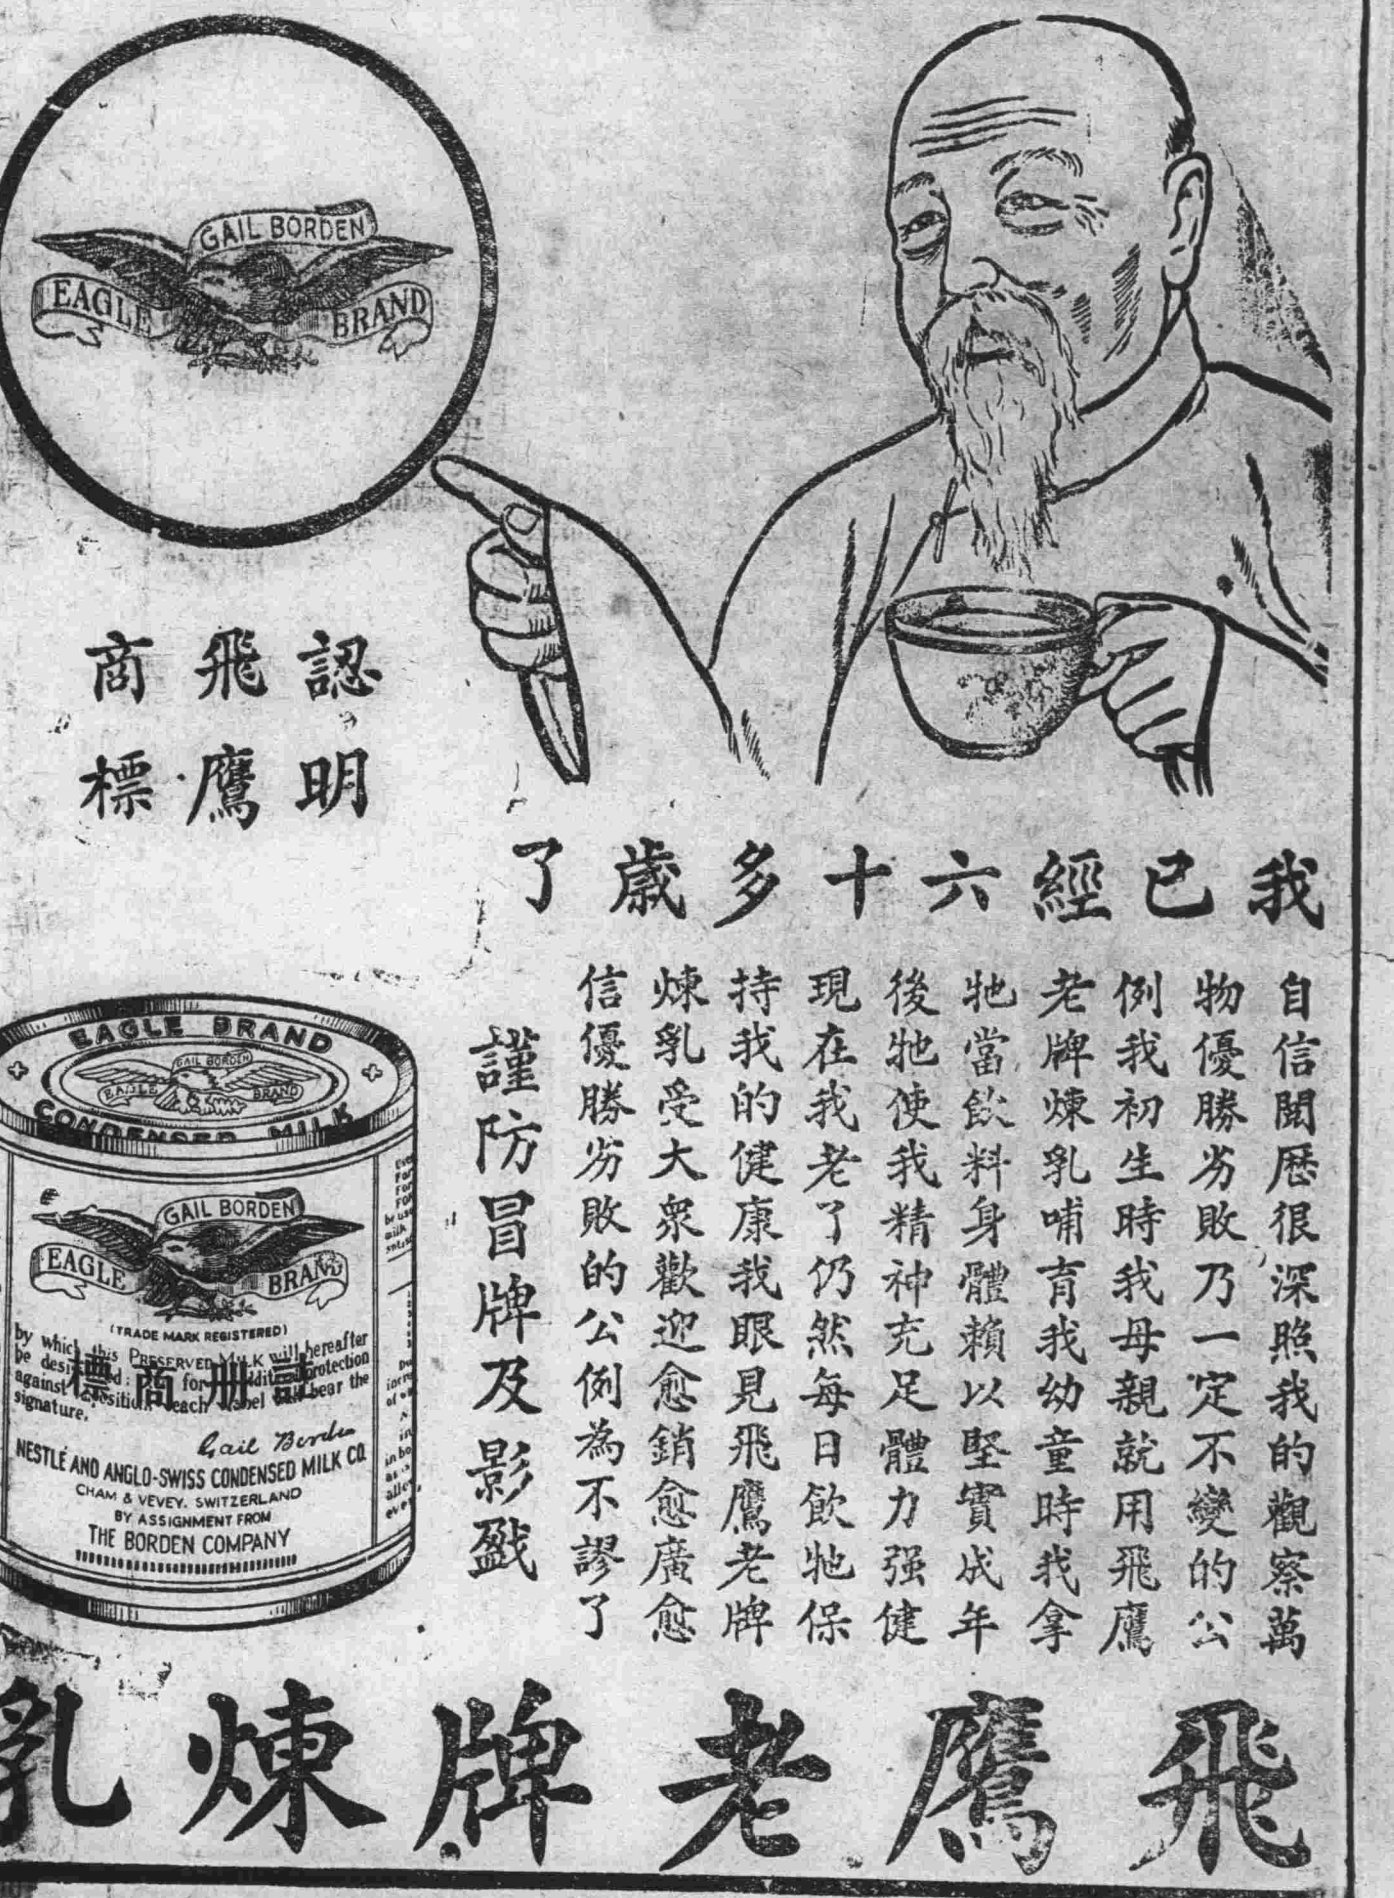 GAIL BORDEN
EAGLE BRAND
認明
飛鷹
商標
我已經六十多歲了
自信閱歷很深照我的觀察萬
物優勝劣敗乃一定不變的公
例我初生時我母親就用飛鷹
老牌煉乳哺育我幼童時我拿
牠當飲料身體賴以堅實成年
後牠使我精神充足體力强健
現在我老了仍然每日飲牠保
持我的健康我眼見飛鷹老牌
煉乳受大衆歡迎愈銷愈廣愈
信優勝劣敗的公例為不謬了
謹防冒牌及影戤
EAGLE BRAND
GAIL BORDEN
EAGLE BRAND
CONDENSED MILK
GAIL BORDEN
EAGLE BRAND
(TRADE MARK REGISTERED)
by which this PRESERVED MILK will hereafter
be for protection
against each label will bear the
signature.
註册商標
Gail Borden
NESTLÉ AND ANGLO-SWISS CONDENSED MILK CO.
CHAM & VEVEY, SWITZERLAND
BY ASSIGNMENT FROM
THE BORDEN COMPANY
飛鷹老牌煉乳